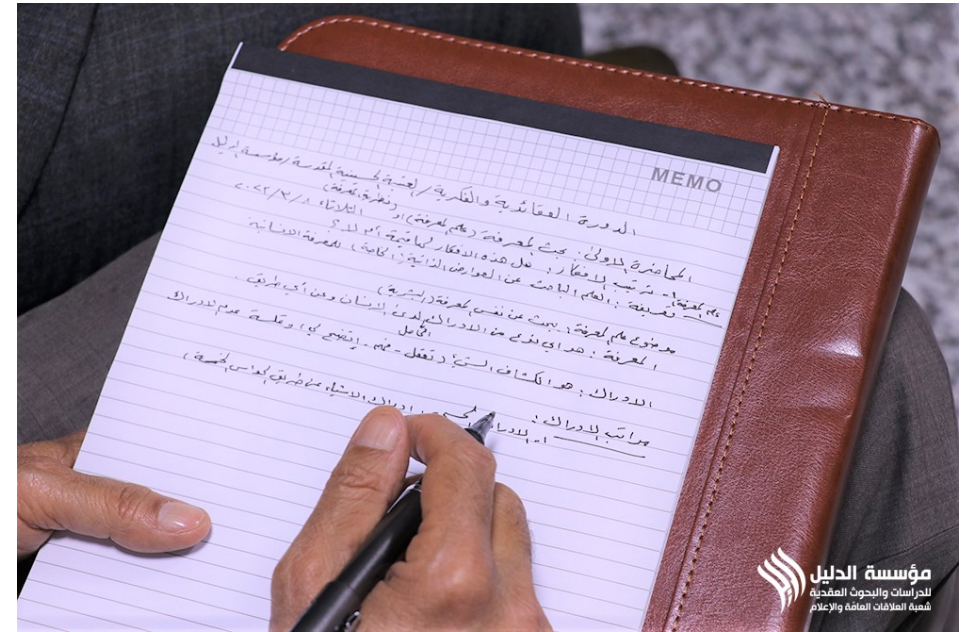 MEMO
الدورة العقائدية والفكرية / العتبة الحسينية المقدسة / مؤسسة الدليل
المحاضرة الاولى: بحث المعرفة (علم المعرفة) او (نظرية المعرفة) الثلاثاء ٢٠٢٢/٣/٨
علم المعرفة: ١- ترتيب الافكار: هل هذه الافكار لها قيمة أم لا؟
تعريفه: العلم الباحث عن العوارض الذاتية (الخاصة) للمعرفة الانسانية
موضوع علم المعرفة: يبحث عن نفس المعرفة (البشرية)
المعرفة: هو اي نوع من الادراك لدى الانسان وعن أي طريق.
الادراك: هو انكشاف الشيء (تعقل - فهم - إتضح لي) وعكسه عدم الادراك
الكامل
مراتب الادراك:
١- الادراك الحسي: ادراك الاشياء عن طريق الحواس الخمسة)
مؤسسة الدليل
للدراسات والبحوث العقدية
شعبة العلاقات العامة والإعلام